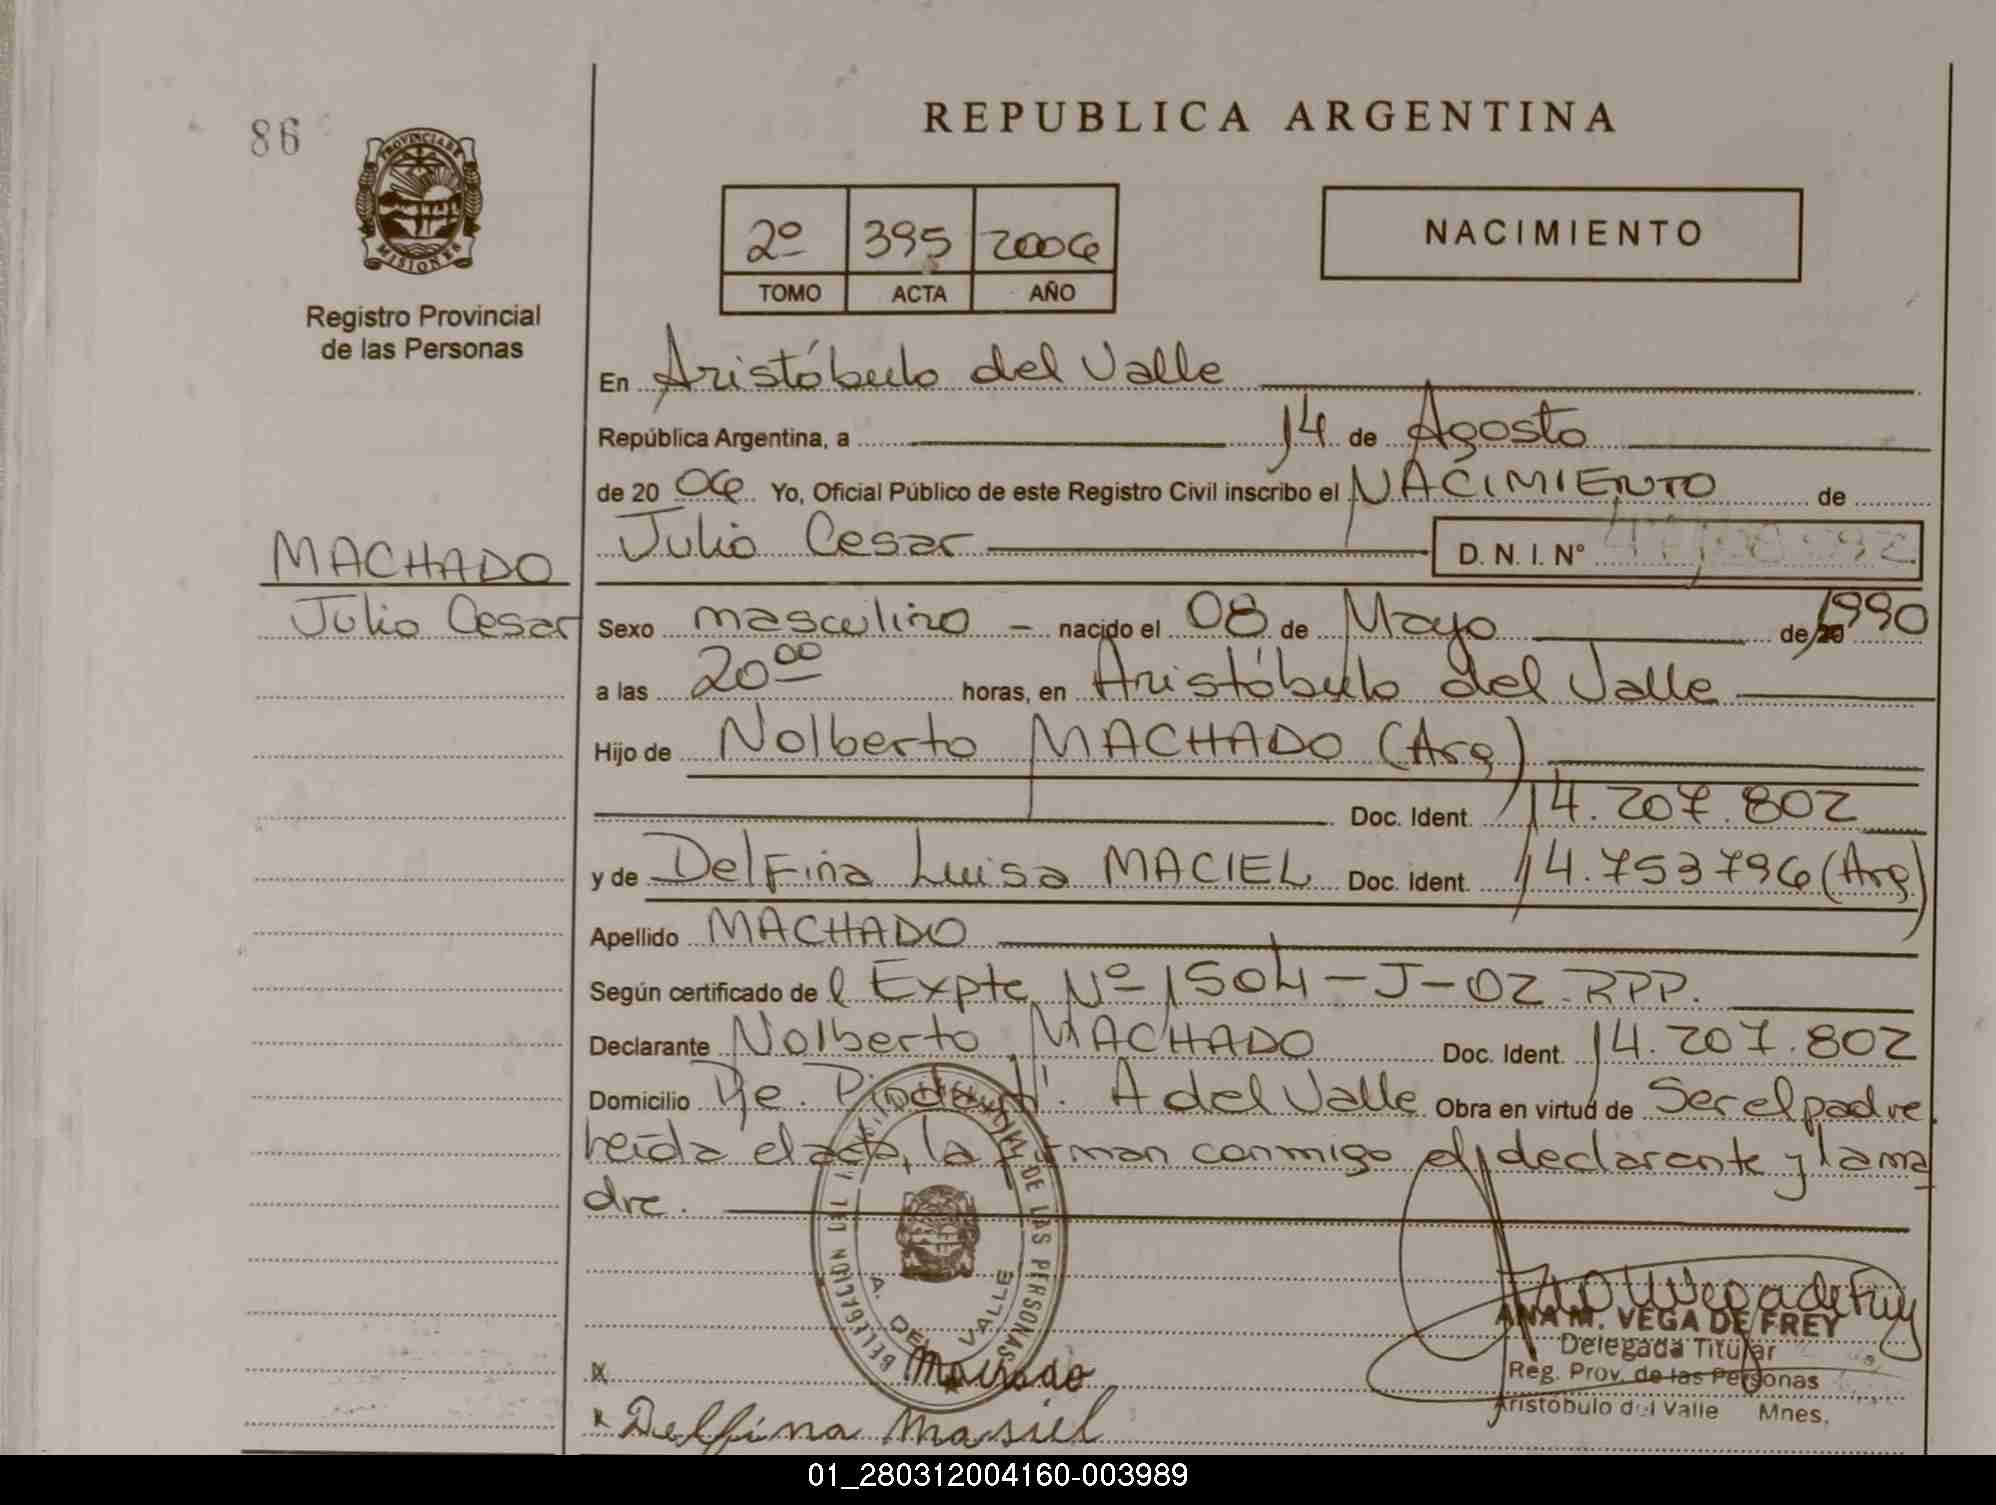 86
PROVINCIA DE
MISIONES
Registro Provincial
de las Personas
REPUBLICA ARGENTINA
2º 395 2006
TOMO ACTA AÑO
NACIMIENTO
En Aristóbulo del Valle
República Argentina, a 14 de Agosto
de 20 06 Yo, Oficial Público de este Registro Civil inscribo el NACIMIENTO de
Julio Cesar D. N. I. Nº
MACHADO
Julio Cesar
Sexo masculino - nacido el 08 de Mayo de 1990
a las 20 00 horas, en Aristóbulo del Valle
Hijo de Nolberto MACHADO (Arg)
Doc. Ident. 14.207.802
y de Delfina Luisa MACIEL Doc. Ident. 14.753796 (Arg)
Apellido MACHADO
Según certificado de l Expte Nº 1504-J-02 RPP.
Declarante Nolberto MACHADO Doc. Ident. 14.207.802
Domicilio A del Valle Obra en virtud de Ser el padre
leída el acta, la firman conmigo el declarante y la ma
dre.
DELEGACION DEL DE LAS PERSONAS
A. DEL VALLE
ANA M. VEGA DE FREY
Delegada Titular
Reg. Prov. de las Personas
Aristóbulo del Valle Mnes.
x Machado
x Delfina Masiel
01_280312004160-003989